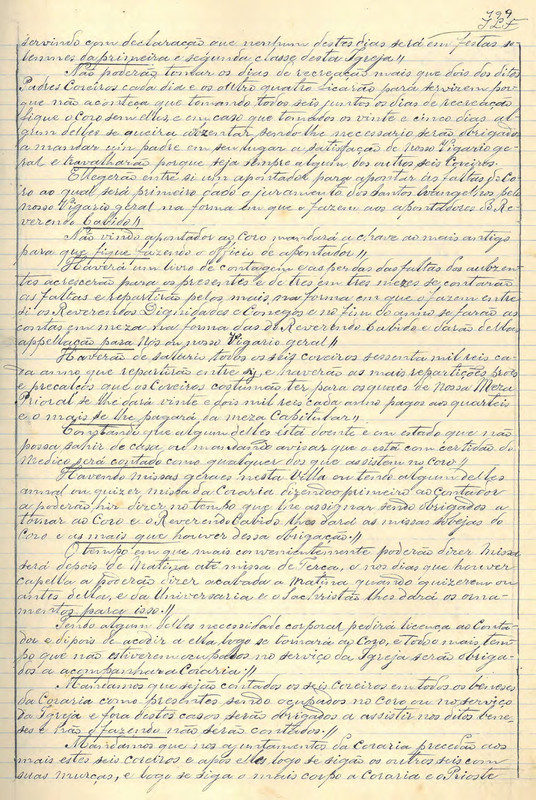 799
servindo com declaração que nenhum destes dias será em festas so-
lemnes da primeira e segunda classe desta Igreja //
Não poderão tomar os dias de recreação mais que dois dos ditos
Padres Coreiros cada dia e os outro quatro ficarão para servirem por
que não aconteça que tomando todos seis juntos os dias de recreação
fique o Coro sem elles, e em caso que tomados os vinte e cinco dias al-
gum delles se queira auzentar sendo lhe necessario serão obrigados
a mandar um padre em seu lugar a satisfação de nosso Vigario ge-
ral e travalharão porque seja sempre algum dos outros seis Coreiros.
Ellegerão entre si um apontador para apontar as faltas do Co-
ro ao qual será primeiro dado o juramento dos Santos Evangelhos pelo
nosso Vigario geral na forma em que o fazem aos apontadores do Re-
verendo Cabido //
Não vindo apontador ao Coro mandará a chave ao mais antigo
para que fique fazendo o officio de apontador //
Haverá um livro de contagem e as perdas das faltas dos auzen-
tes acrescerão para os presentes e de tres em tres mezes se contarão
as faltas e repartirão pelos mais na forma em que o fazem entre
si os Reverendos Dignidades e Conegos e no fim do anno se farão as
contas em meza na forma das do Reverendo Cabido e darão dellas
appellação para Nós ou nosso Vigario geral //
Haverão de salario todos os seis coreiros sessenta mil reis ca-
da anno que repartirão entre sy, e haverão as mais repartições proes
e precalços que os Coreiros costumão ter para os quaes de Nossa Meza
Prioral se lhe dará vinte e dois mil reis cada anno pagos aos quarteis
e o mais se lhe pagará da meza Capitular //
Constando que algum delles está doente e em estado que não
possa sahir de casa, ou mandando avisar que o está com certidão do
Medico será contado como qualquer dos que assistem no Coro //
Havendo missas geraes nesta Villa ou tendo algum delles
annal ou quizer missa da Coraria dizendo primeiro ao Contador
a poderão hir dizer no tempo que lhe assignar sendo obrigados a
tornar ao Coro e o Reverendo Cabido lhes dará as missas sobejas do
Coro e as mais que houver dessa obrigação //
O tempo em que mais convenientemente poderão dizer Missa
será depois de Matina até missa de Terça, e nos dias que houver
capella a poderão dizer acabada a Matina quando quizerem ou
antes della, e da Universaria e o Sachristão lhes dará os orna-
mentos para isso //
Tendo algum delles necessidade corporal, pedirá licença ao Conta-
dor e depois de acodir a ella, logo se tornará ao Coro, e todo mais tem-
po que não estiverem occupados no serviço da Igreja serão obriga-
dos a acompanhar a Coraria //
Mandamos que sejão contados os seis Coreiros em todos os beneses
da Coraria como presentes, sendo ocupados no Coro ou no serviço
da Igreja e fora destes casos serão obrigados a assistir nos ditos bene-
ses e não o fazendo não serão contados //
Mandamos que nos ajuntamentos da Coraria precedão aos
mais estes seis coreiros e após elles logo se sigão os outros seis com
suas murças, e logo se siga o mais corpo a Coraria e o Prioste